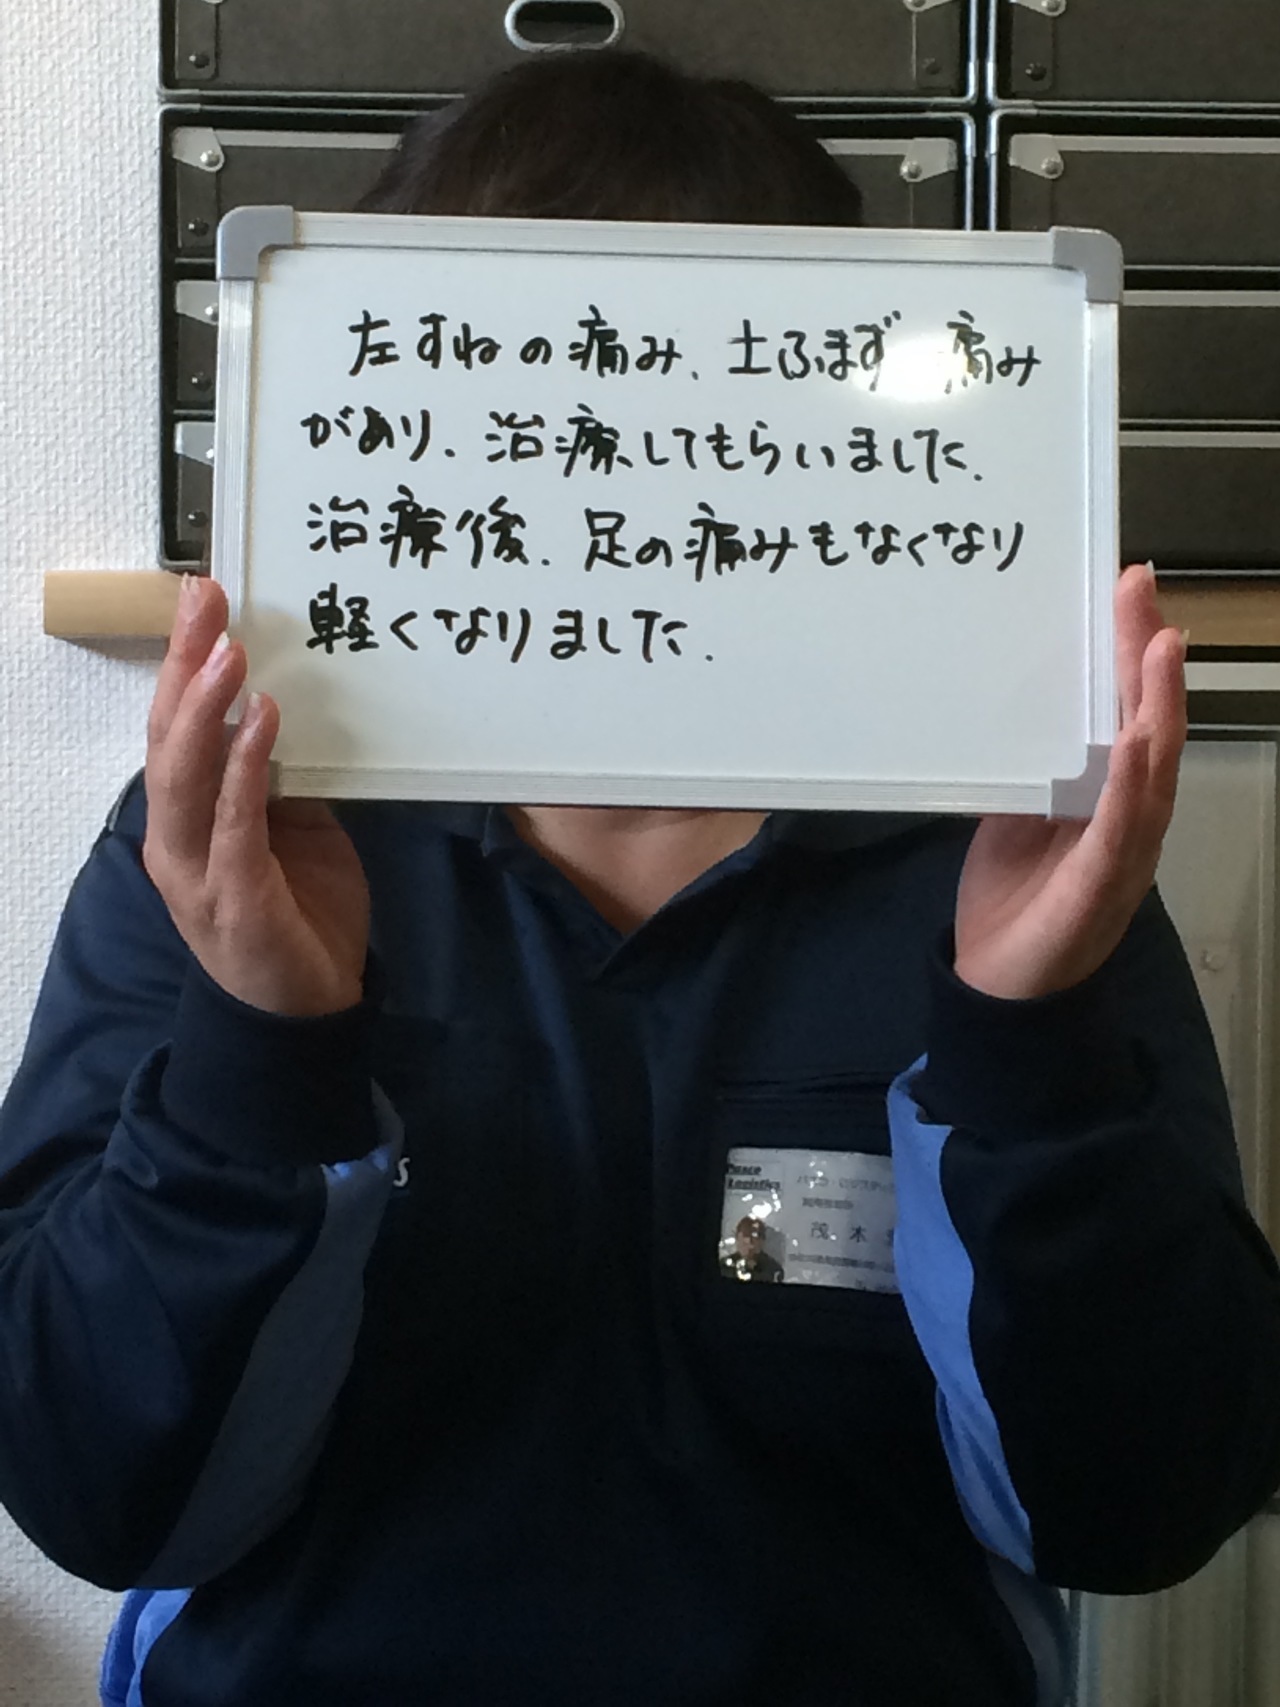 左すねの痛み、土ふまず 痛み
があり、治療してもらいました.
治療後、足の痛みもなくなり
軽くなりました.
s
Peace
Logistics
茂木